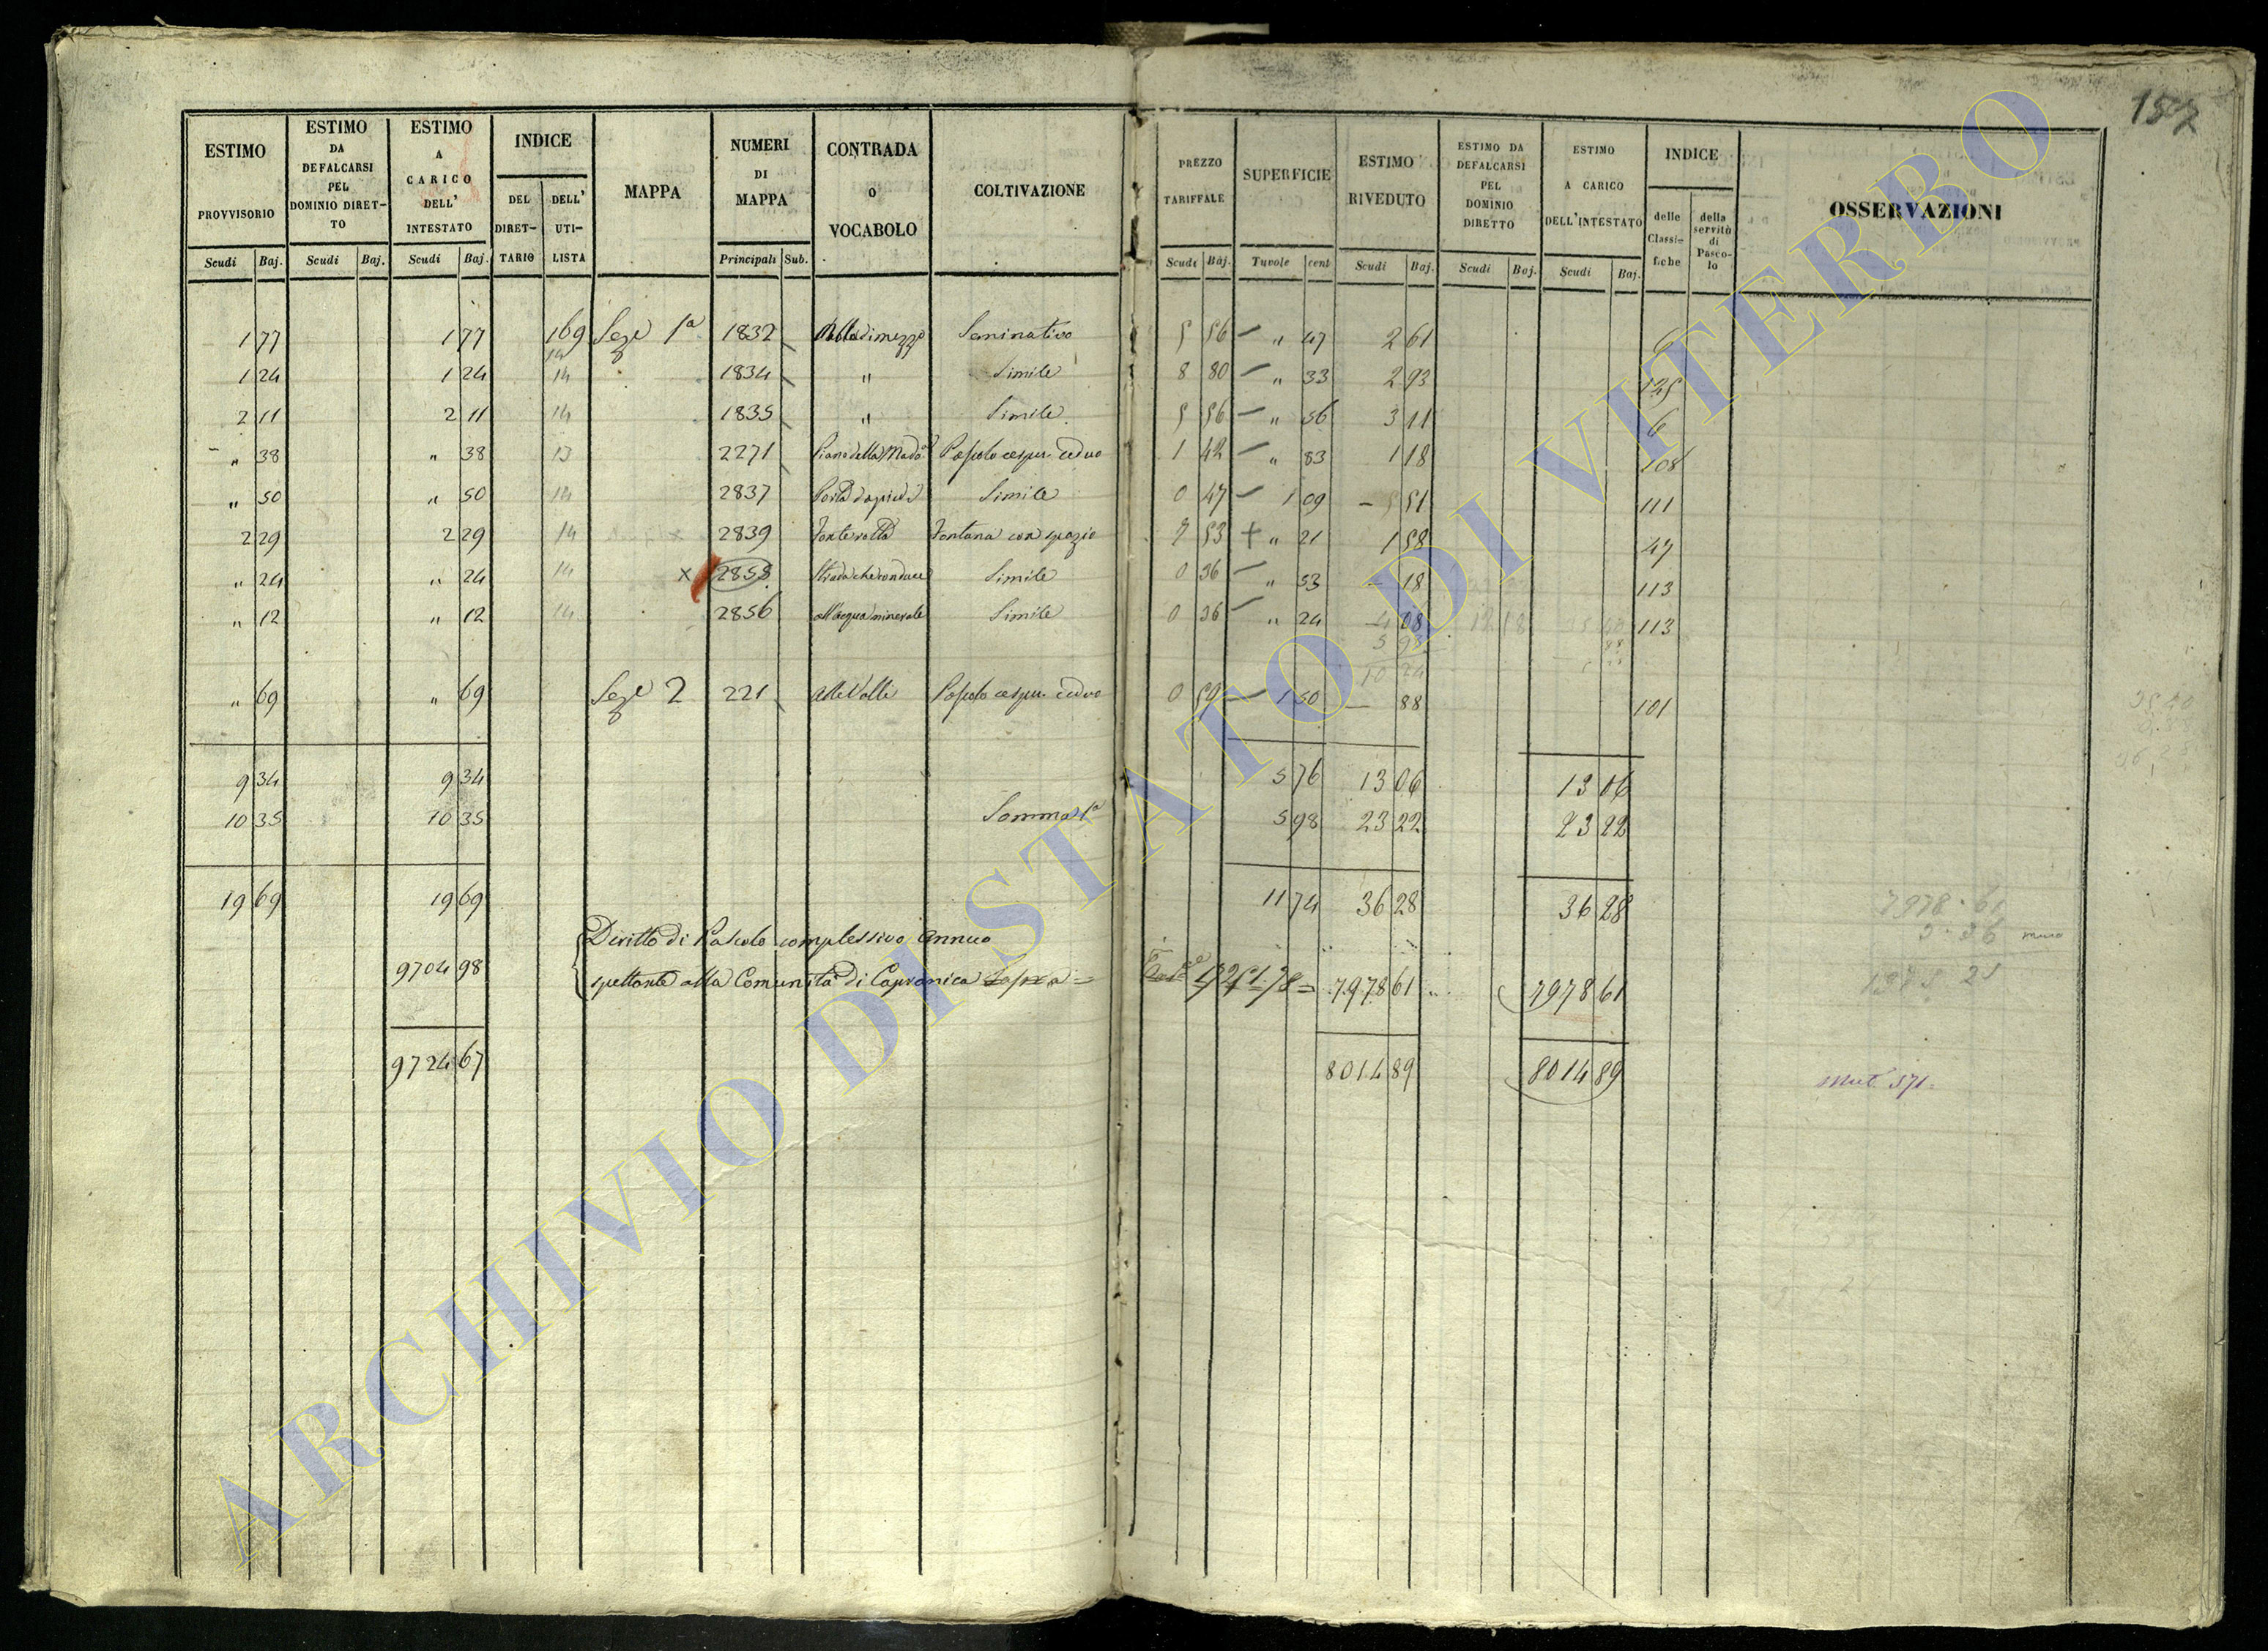 157
ESTIMO PROVVISORIO Scudi Baj.
ESTIMO DA DEFALCARSI PEL DOMINIO DIRET- TO Scudi Baj.
ESTIMO A CARICO DELL' INTESTATO Scudi Baj.
INDICE DEL DIRET- TARIO DELL' UTI- LISTA
MAPPA
NUMERI DI MAPPA Principali Sub.
CONTRADA O VOCABOLO
COLTIVAZIONE
PREZZO TARIFFALE Scudi Baj.
SUPERFICIE Tuvole cent
ESTIMO RIVEDUTO Scudi Baj.
ESTIMO DA DEFALCARSI PEL DOMINIO DIRETTO Scudi Baj.
ESTIMO A CARICO DELL'INTESTATO Scudi Baj.
INDICE delle Classi- fiche della servitù di Pasco- lo
OSSERVAZIONI
1 77 1 77 169 Sez.e 1a 1832 Seminativo 5 56 " 47 2 61 6
14
1 24 1 24 14 1834 " Simile 8 80 " 33 2 93 125
2 11 2 11 14 1835 " Simile 5 56 " 56 3 11 6
" 38 " 38 13 2271 Piano della Mado.a Pascolo cespu. ceduo 1 42 " 83 1 18 108
" 50 " 50 14 2837 Simile 0 47 1 09 51 111
2 29 2 29 14 x 2839 Fonte rotta Fontana con spazio 7 53 + " 21 1 58 47
" 24 " 24 14 x 2855 Strada che conduce Simile 0 36 " 53 18 113
" 12 " 12 14 2856 all'acqua minerale Simile 0 36 " 24 08 113
" 69 " 69 Sez.e 2 221 alle Valle Pascolo cespu. ceduo 0 50 1 50 88 101
9 34 9 34 5 76 13 06 13 06
10 35 10 35 Somma 1a 5 98 23 22 23 22
19 69 19 69 11 74 36 28 36 28
Diritto di Pascolo complessivo Annuo
9704 98 spettante alla Comunità di Capranica sopra = 7978 61 7978 61
9724 67 8014 89 8014 89
Mut. 371=
7978.61
ARCHIVIO DI STATO DI VITERBO